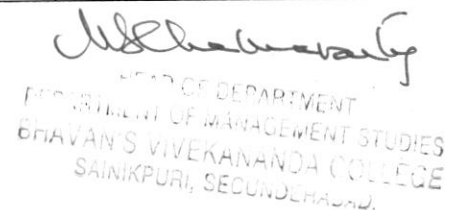 HEAD OF DEPARTMENT
DEPARTMENT OF MANAGEMENT STUDIES
BHAVAN'S VIVEKANANDA COLLEGE
SAINIKPURI, SECUNDERABAD.